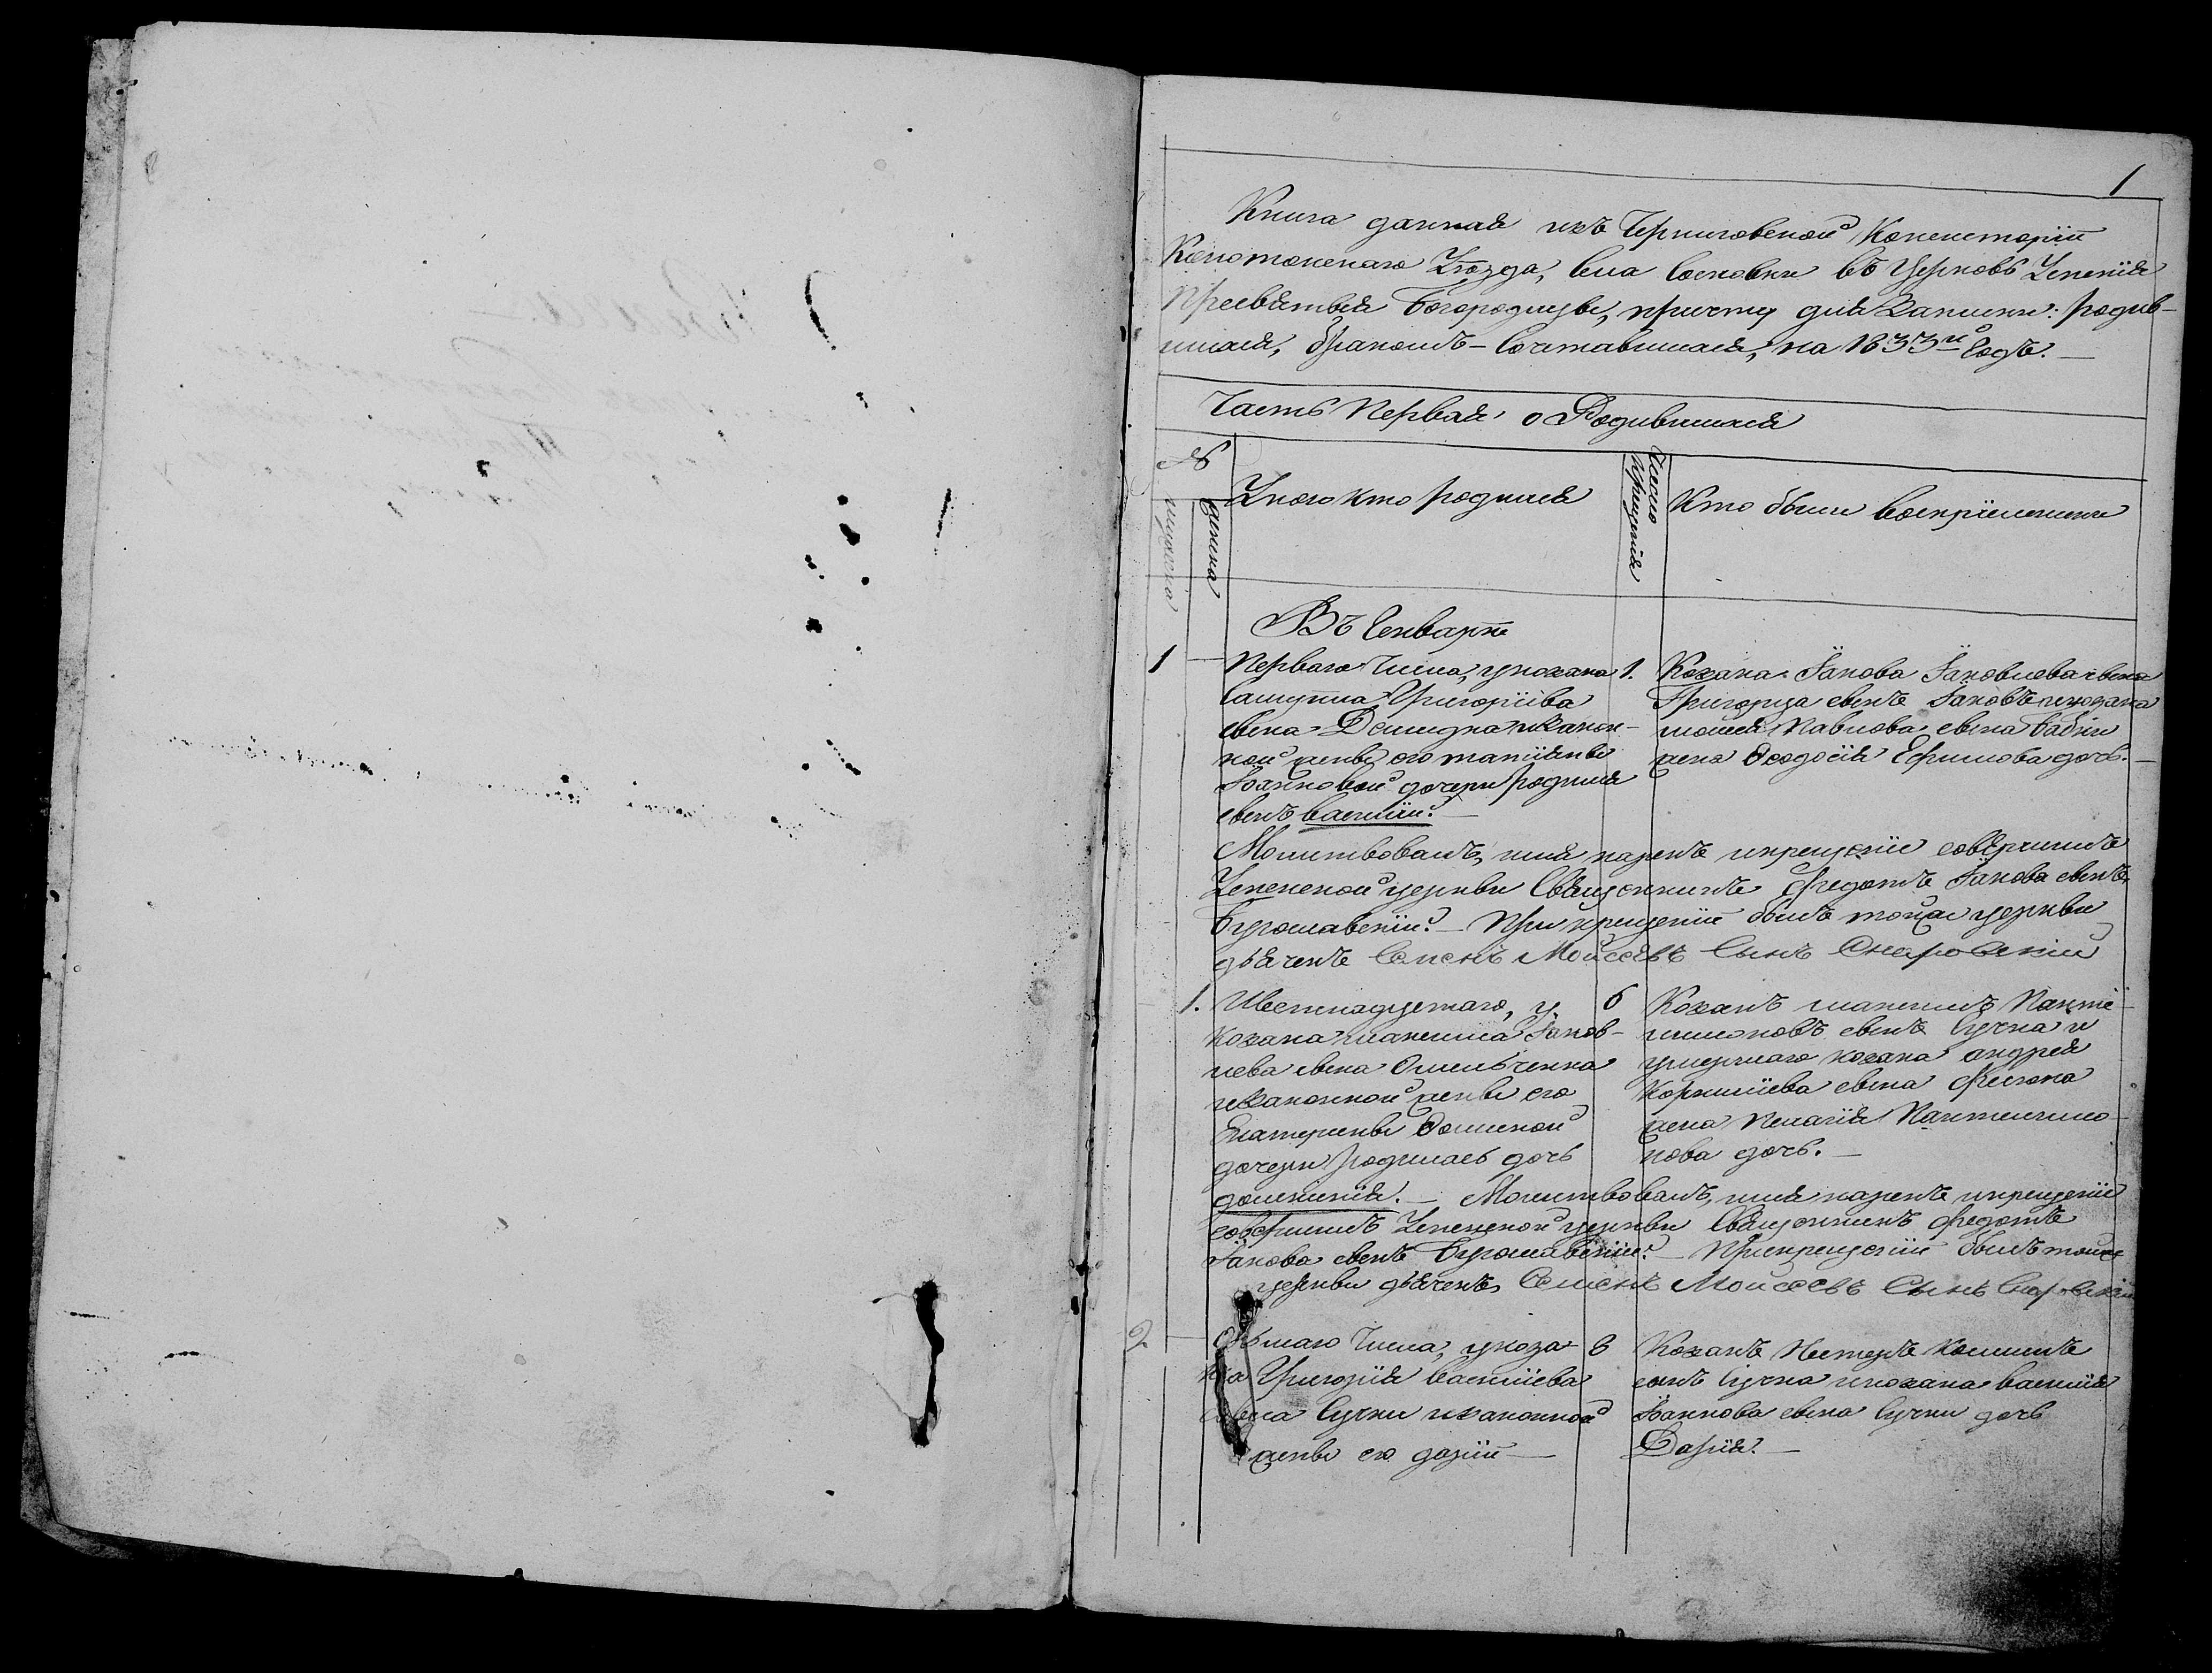 1
Книга данная изъ Черниговской Консисторіи
Конотопскаго Уѣзда, села Сосновки въ церковь Успенія
Пресвятыя Богородицы, причту для Записки: родив-
шихся, бракомъ-Сочтавшихся, на 1833й Годъ.—
Часть Первая о Родившихся
№
мужеска
женска
У кого кто родился
Число крещенія
Кто были воспріемники
Въ Генварѣ
1 — Перваго Числа, у козака
Григоріева
сына Демидка и Закон-
ной жены его татіяны
Іоанновой дочери родился
сынъ василій.—
1.
Козака Іакова Іаковлева сына
Григорца сынъ Іаковъ и козака
Павлова сына Бабки
жена Ѳеодосія Ефимова дочь.—
Молитвовалъ, имя нарекъ и крещеніе совершилъ
Успенской церкви Священникъ Федотъ Іакова сынъ
Бугославскій.— При крещеніи былъ тойже церкви
дьячекъ Семенъ Моисеевъ Сынъ
1. Шестнадцетаго, у
козака максима Іаков-
лева сына Омельченка
и Законной жены его
Екатерины Ѳоминой
дочери родилась дочь
домникія.—
6
Козакъ максимъ Панте
лимоновъ сынъ Сучка и
умершаго козака андрея
Корнилиева сына
жена Пелагія Пантелимо-
нова дочь.—
Молитвовалъ, имя нарекъ и крещеніе
совершилъ Успенской церкви Священникъ Федотъ
Іакова сынъ Бугославскій.— При крещеніи былъ тойже
церкви дьячекъ, Семенъ Моисеевъ Сынъ
2 — Осьмаго Числа, у коза-
ка Григорія василіева
сына Сучки и законной
жены его даріи —
8
Козакъ Нестеръ
сынъ Сучка и козака василія
Іоаннова сына Сучки дочь
Дарія.—